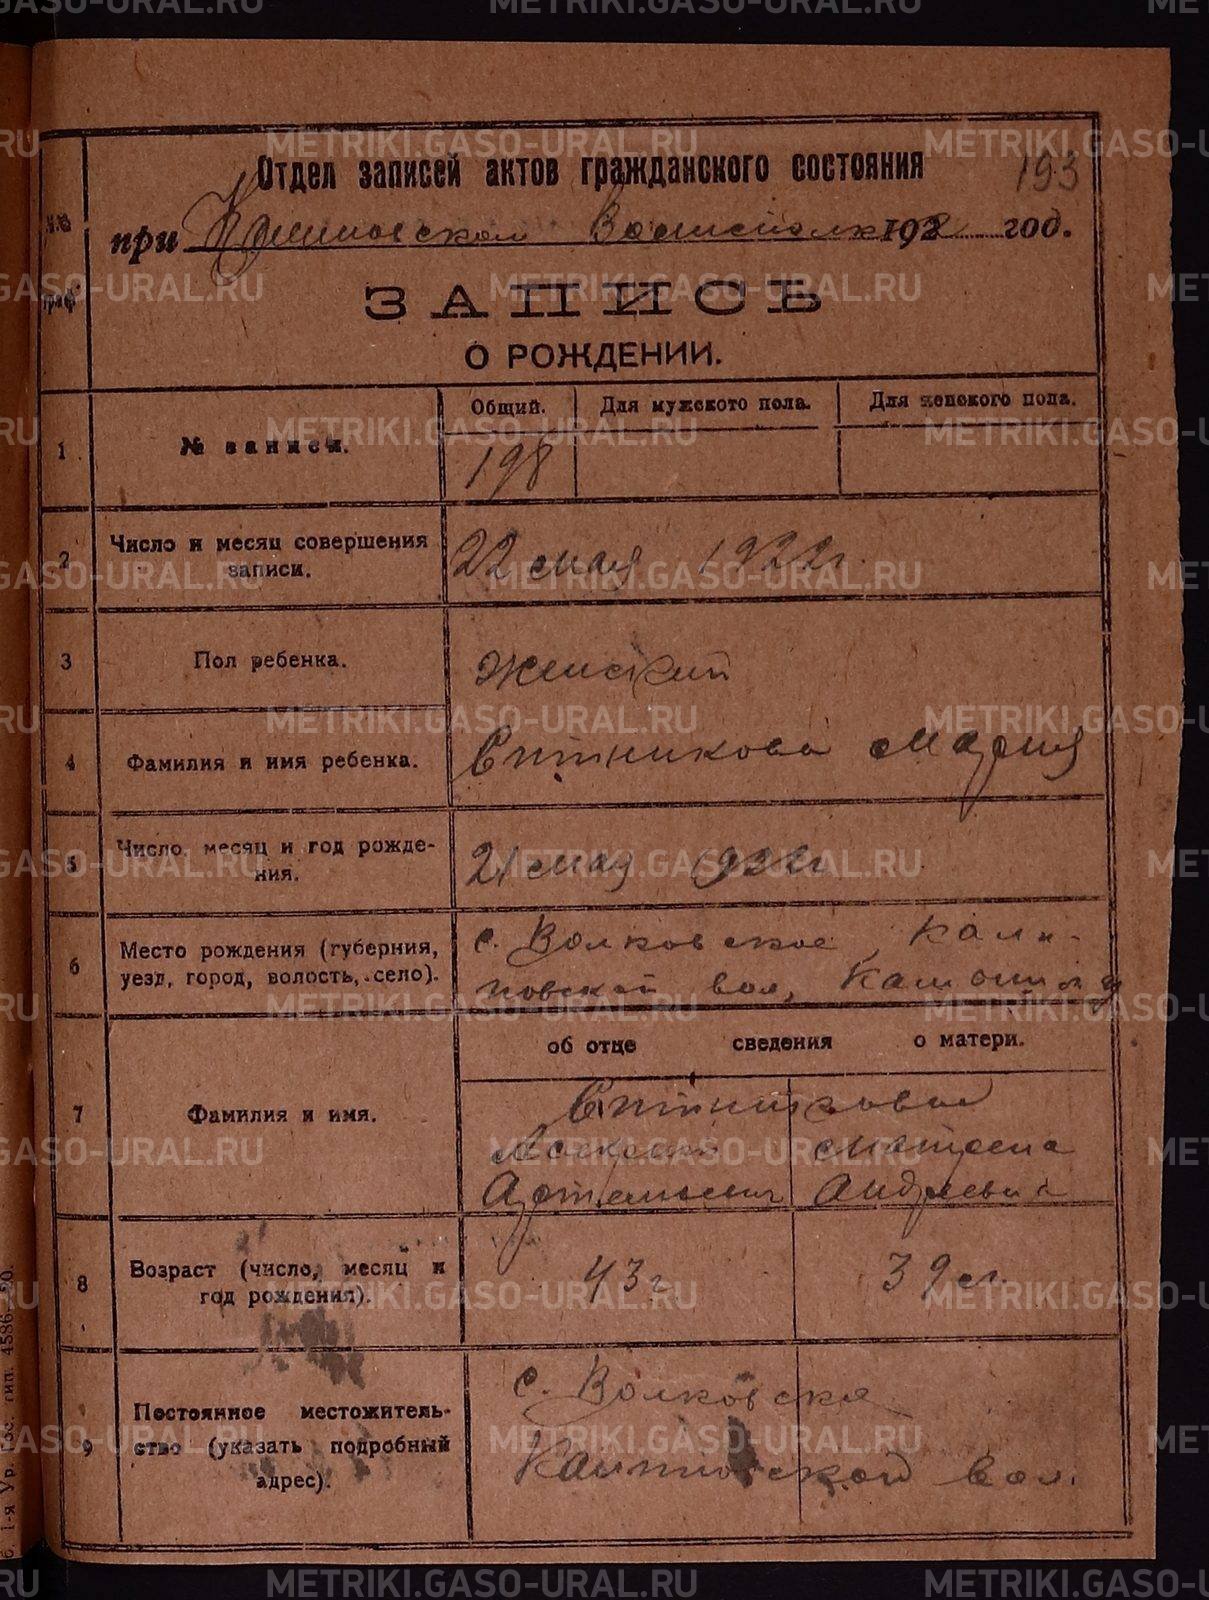 Отдел записей актов гражданского состояния 193
при Калиновском Волисполк. 1922 год.
№№ граф
ЗАПИСЬ
О РОЖДЕНИИ.
Общий. Для мужского пола. Для женского пола.
1 № записи. 198
2 Число и месяц совершения записи. 22 мая 1922 г.
3 Пол ребенка. Женский
4 Фамилия и имя ребенка. Ситникова Мария
5 Число, месяц и год рожде-
ния. 21 мая 1922 г
6 Место рождения (губерния, с. Волковское, Кали-
уезд, город, волость, село). новской вол,
об отце сведения о матери.
7 Фамилия и имя. Ситниковы
Матрена
Артемьевич Андреевна
8 Возраст (число, месяц и
год рождения). 43 г. 39 л.
9 Постоянное местожитель-
ство (указать подробный
адрес).
с. Волковское
Калиновской вол.
б. 1-я Ур. Гос. тип. 4586—20.
METRIKI.GASO-URAL.RU